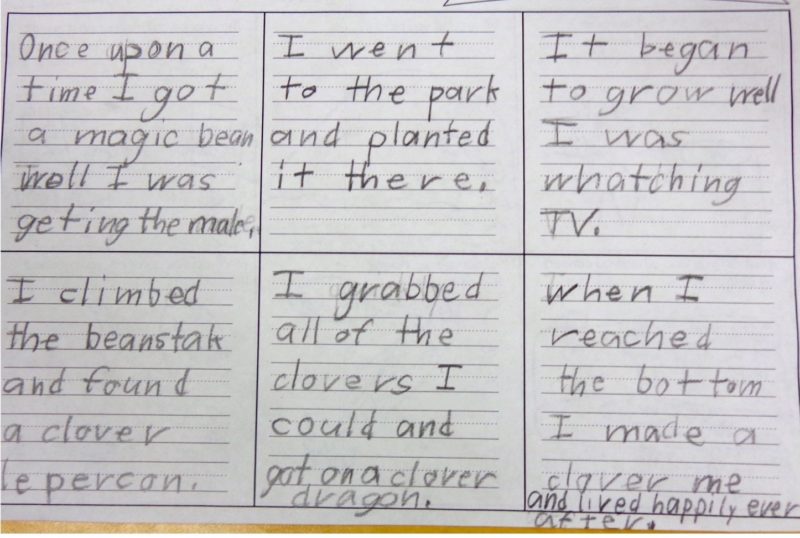 Once upon a
time I got
a magic bean
woll I was
geting the
I went
to the park
and planted
it there.
It began
to grow well
I was
whatching
TV.
I climbed
the beanstak
and found
a clover
le percon.
I grabbed
all of the
clovers I
could and
got on a clover
dragon.
when I
reached
the bottom
I made a
clover me
and lived happily ever
after.